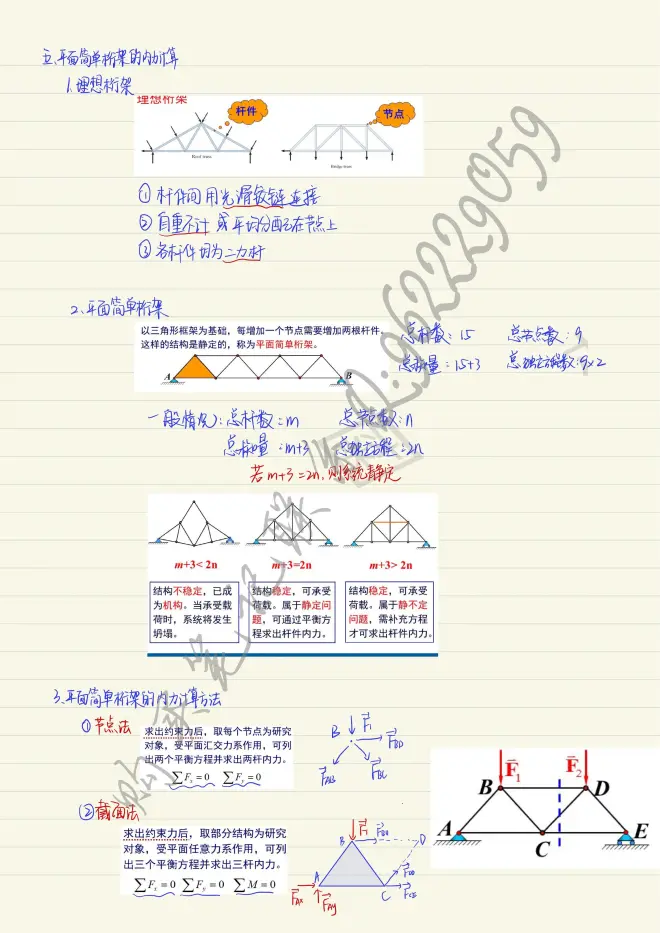 五、平面简单桁架的内力计算
1.理想桁架
理想桁架
杆件
节点
Roof truss
Bridge truss
① 杆件间用光滑铰链连接
② 自重不计 或平均分配在节点上
③ 各杆件均为二力杆
2.平面简单桁架
以三角形框架为基础，每增加一个节点需要增加两根杆件，
这样的结构是静定的，称为平面简单桁架。
A
B
总杆数：15 总节点数：9
总未知量：15+3 总独立方程数：9×2
一般情况：总杆数：m 总节点数：n
总未知量：m+3 总独立方程：2n
若 m+3=2n，则系统静定
m+3< 2n
m+3=2n
m+3> 2n
结构不稳定，已成
为机构。当承受载
荷时，系统将发生
坍塌。
结构稳定，可承受
荷载。属于静定问
题，可通过平衡方
程求出杆件内力。
结构稳定，可承受
荷载。属于静不定
问题，需补充方程
才可求出杆件内力。
3.平面简单桁架的内力计算方法
①节点法
求出约束力后，取每个节点为研究
对象，受平面汇交力系作用，可列
出两个平衡方程并求出两杆内力。
∑Fx = 0 ∑Fy = 0
B F₁ F_BD
F_AB F_BC
②截面法
求出约束力后，取部分结构为研究
对象，受平面任意力系作用，可列
出三个平衡方程并求出三杆内力。
∑Fx = 0 ∑Fy = 0 ∑M = 0
B F₁ F_BD D
A C F_CE
F_Ax F_Ay
F₁ F₂
B D
A C E
962229059